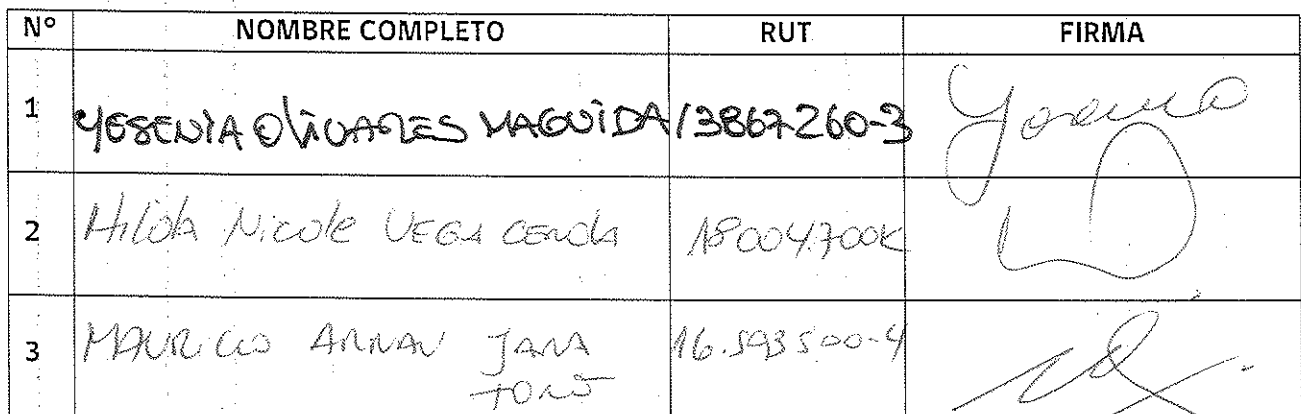 Nº NOMBRE COMPLETO RUT FIRMA
1 YESENIA OLIVARES MAGUIDA 13867260-3 Yesenia
2 Hilda Nicole VEGA CERDA 18004.700K
3 MAURICIO JARA 16.593500-4
TORO